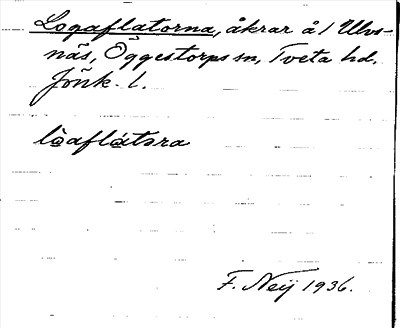 Logaflatorna, åkrar å 1 Ulvs-
näs, Öggestorps sn, Tveta hd,
Jönk. l.
lòaflàtəra
F. Neij 1936.